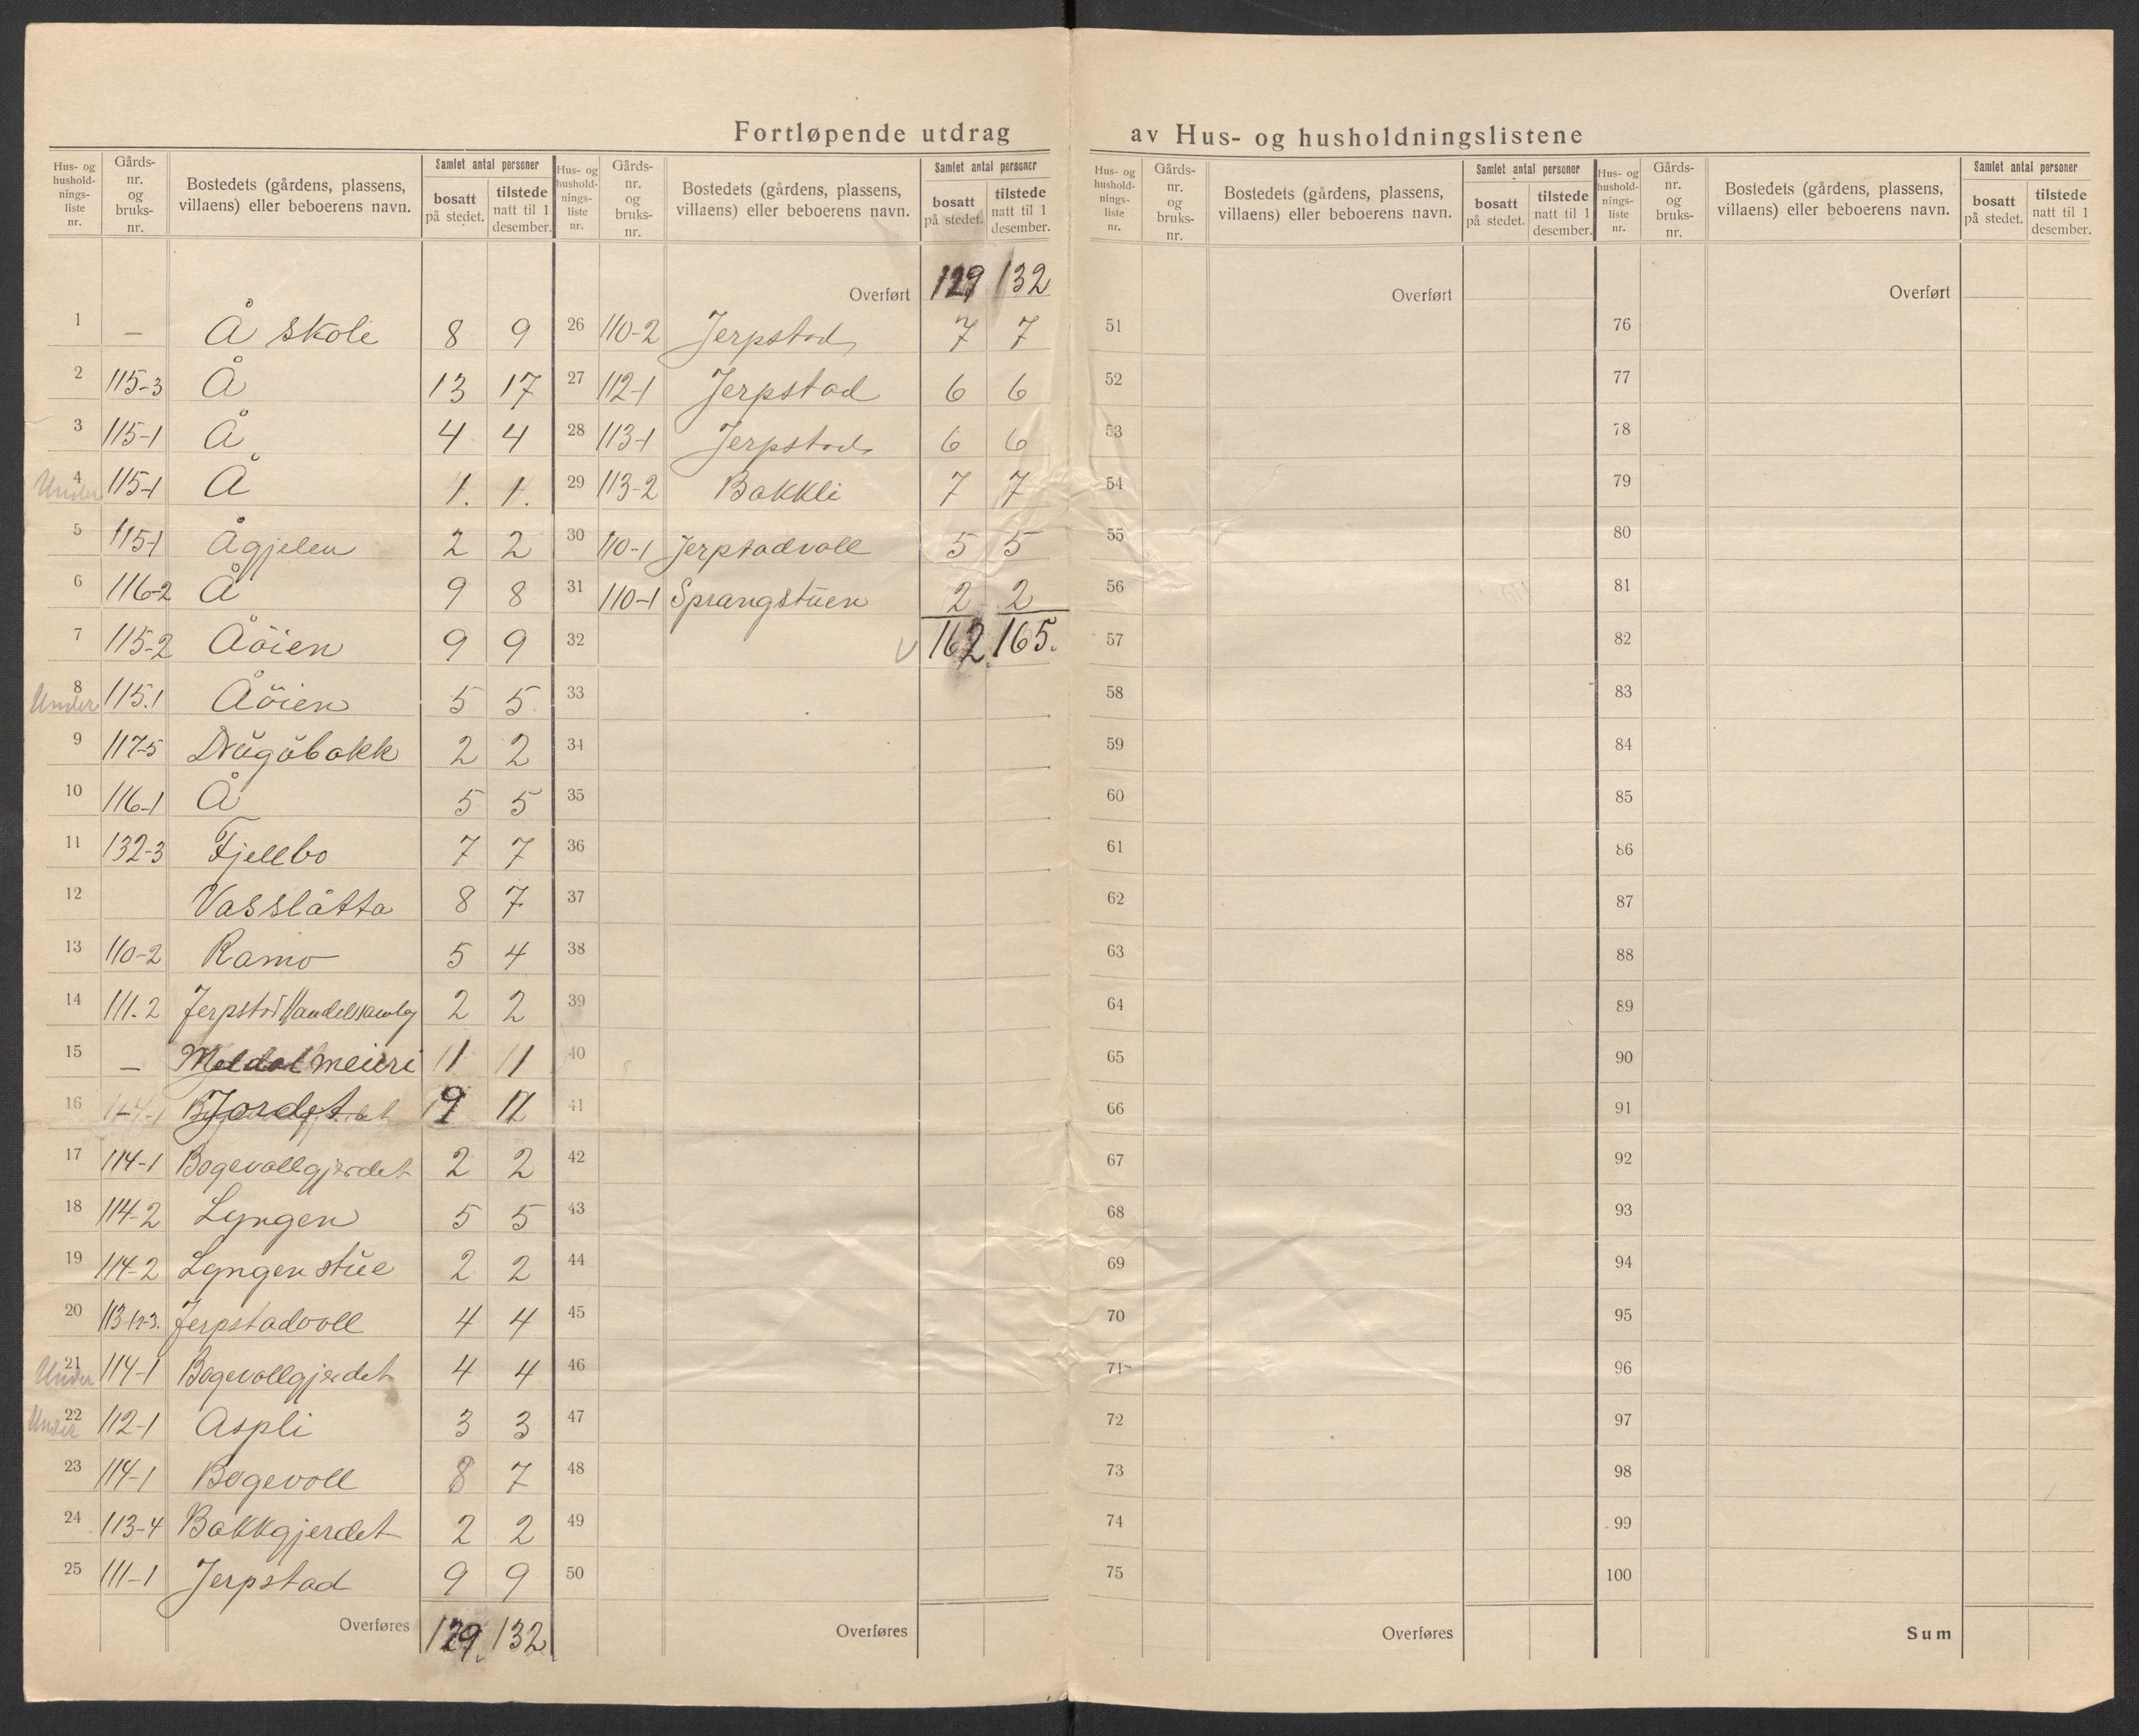 Fortløpende utdrag av Hus- og husholdningslistene
Hus- og hushold-nings-liste nr. | Gårds-nr. og bruks-nr. | Bostedets (gårdens, plassens, villaens) eller beboerens navn. | Samlet antal personer | bosatt på stedet. | tilstede natt til 1 desember.
1 – Å skole 8 9
2 115-3 Å 13 17
3 115-1 Å 4 4
Under 4 115-1 Å 1. 1.
5 115-1 Ågjelen 2 2
6 116-2 Å 9 8
7 115-2 Åöien 9 9
Under 8 115.1 Åöien 5 5
9 117-5 Drugubakk 2 2
10 116-1 Å 5 5
11 132-3 Fjellbo 7 7
12 Vasslåtta 8 7
13 110-2 Ramo 5 4
14 111-2 Jerpstad Handelssamlag 2 2
15 – Meldal meieri 11 11
16 – Jordet 9
17 114-1 Bogevollgjerdet 2 2
18 114-2 Lyngen 5 5
19 114-2 Lyngenstue 2 2
20 Jerpstadvoll 4 4
Under 21 114-1 Bogevollgjerdet 4 4
Under 22 112-1 Aspli 3 3
23 114-1 Bogevoll 8 7
24 113-4 Bakkgjerdet 2 2
25 111-1 Jerpstad 9 9
Overføres 129. 132
Hus- og hushold-nings-liste nr. | Gårds-nr. og bruks-nr. | Bostedets (gårdens, plassens, villaens) eller beboerens navn. | Samlet antal personer | bosatt på stedet. | tilstede natt til 1 desember.
Overført 129 132
26 110-2 Jerpstad 7 7
27 112-1 Jerpstad 6 6
28 113-1 Jerpstad 6 6
29 113-2 Bakkli 7 7
30 110-1 Jerpstadvoll 5 5
31 110-1 Sprangstuen 2 2
32 162 165.
33
34
35
36
37
38
39
40
41
42
43
44
45
46
47
48
49
50
Overføres
Hus- og hushold-nings-liste nr. | Gårds-nr. og bruks-nr. | Bostedets (gårdens, plassens, villaens) eller beboerens navn. | Samlet antal personer | bosatt på stedet. | tilstede natt til 1 desember.
Overført
51
52
53
54
55
56
57
58
59
60
61
62
63
64
65
66
67
68
69
70
71
72
73
74
75
Overføres
Hus- og hushold-nings-liste nr. | Gårds-nr. og bruks-nr. | Bostedets (gårdens, plassens, villaens) eller beboerens navn. | Samlet antal personer | bosatt på stedet. | tilstede natt til 1 desember.
Overført
76
77
78
79
80
81
82
83
84
85
86
87
88
89
90
91
92
93
94
95
96
97
98
99
100
Sum